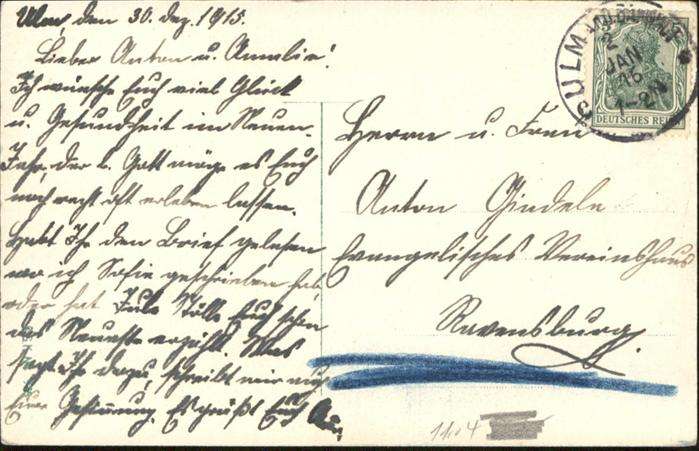 Ulm, den 30. Dez. 1915.
Lieber Anton u. Annalie!
Ich wünsche Euch viel Glück
u. Gesundheit im Neuen
Jahr. der l. Gott möge es Euch
noch recht oft erleben lassen.
Habt Ihr den Brief gelesen
wo ich Sofie geschrieben hab
oder hat Euch schon
das Neueste erzählt. Was
sagt Ihr dazu, schreibt mir nur
Eure Gesinnung. Es grüßt Euch
Herrn u. Frau
Anton Gindele
Evangelisches Vereinshaus
Ravensburg.
ULM
2
JAN
16
1-2N
DEUTSCHES REICH
1104